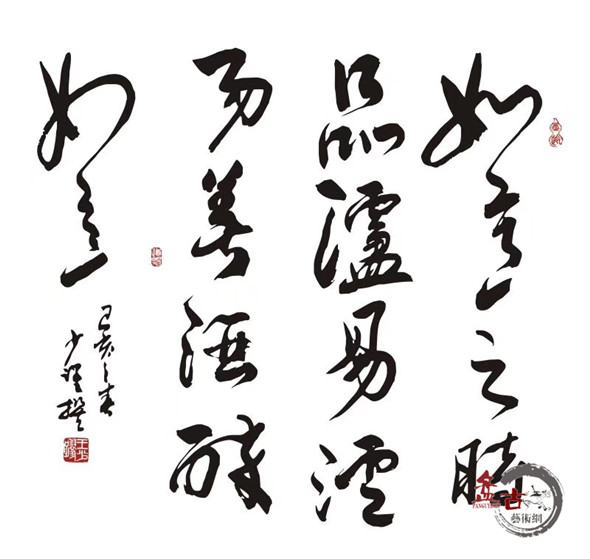 如意之時
品瀘易瀘
易善酒醉
如意
己亥之春
少撰
盘古
藝術網